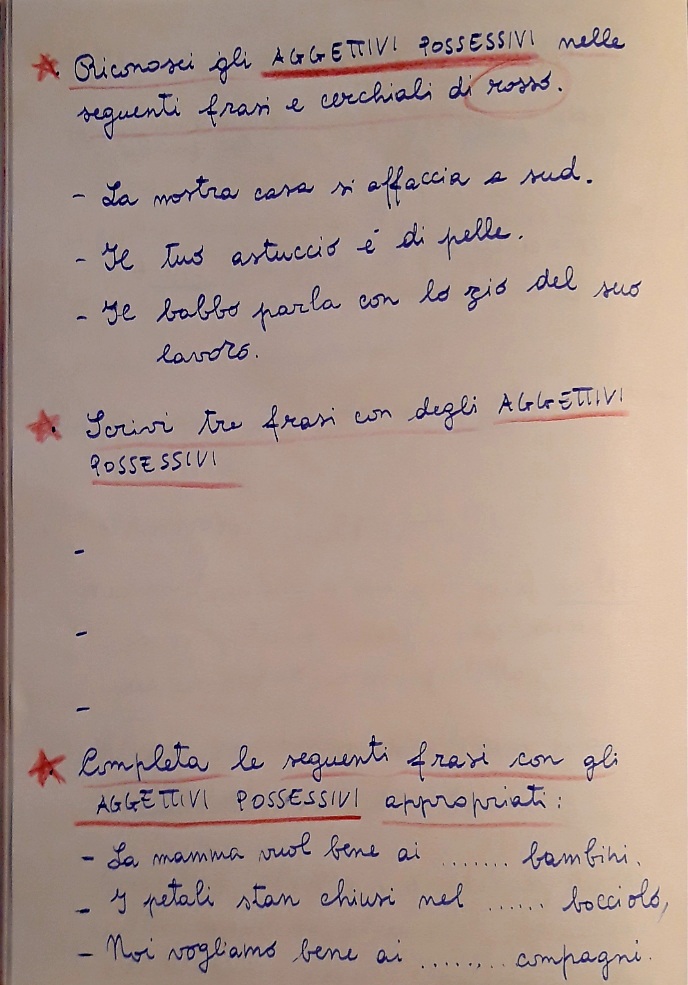 Riconosci gli AGGETTIVI POSSESSIVI nelle
seguenti frasi e cerchiali di rosso.
- La nostra casa si affaccia a sud.
- Il tuo astuccio é di pelle.
- Il babbo parla con lo zio del suo
lavoro.
Scrivi tre frasi con degli AGGETTIVI
POSSESSIVI
-
-
-
Completa le seguenti frasi con gli
AGGETTIVI POSSESSIVI appropriati:
- La mamma vuol bene ai ....... bambini.
- I petali stan chiusi nel ...... bocciolo,
- Noi vogliamo bene ai ....... compagni.